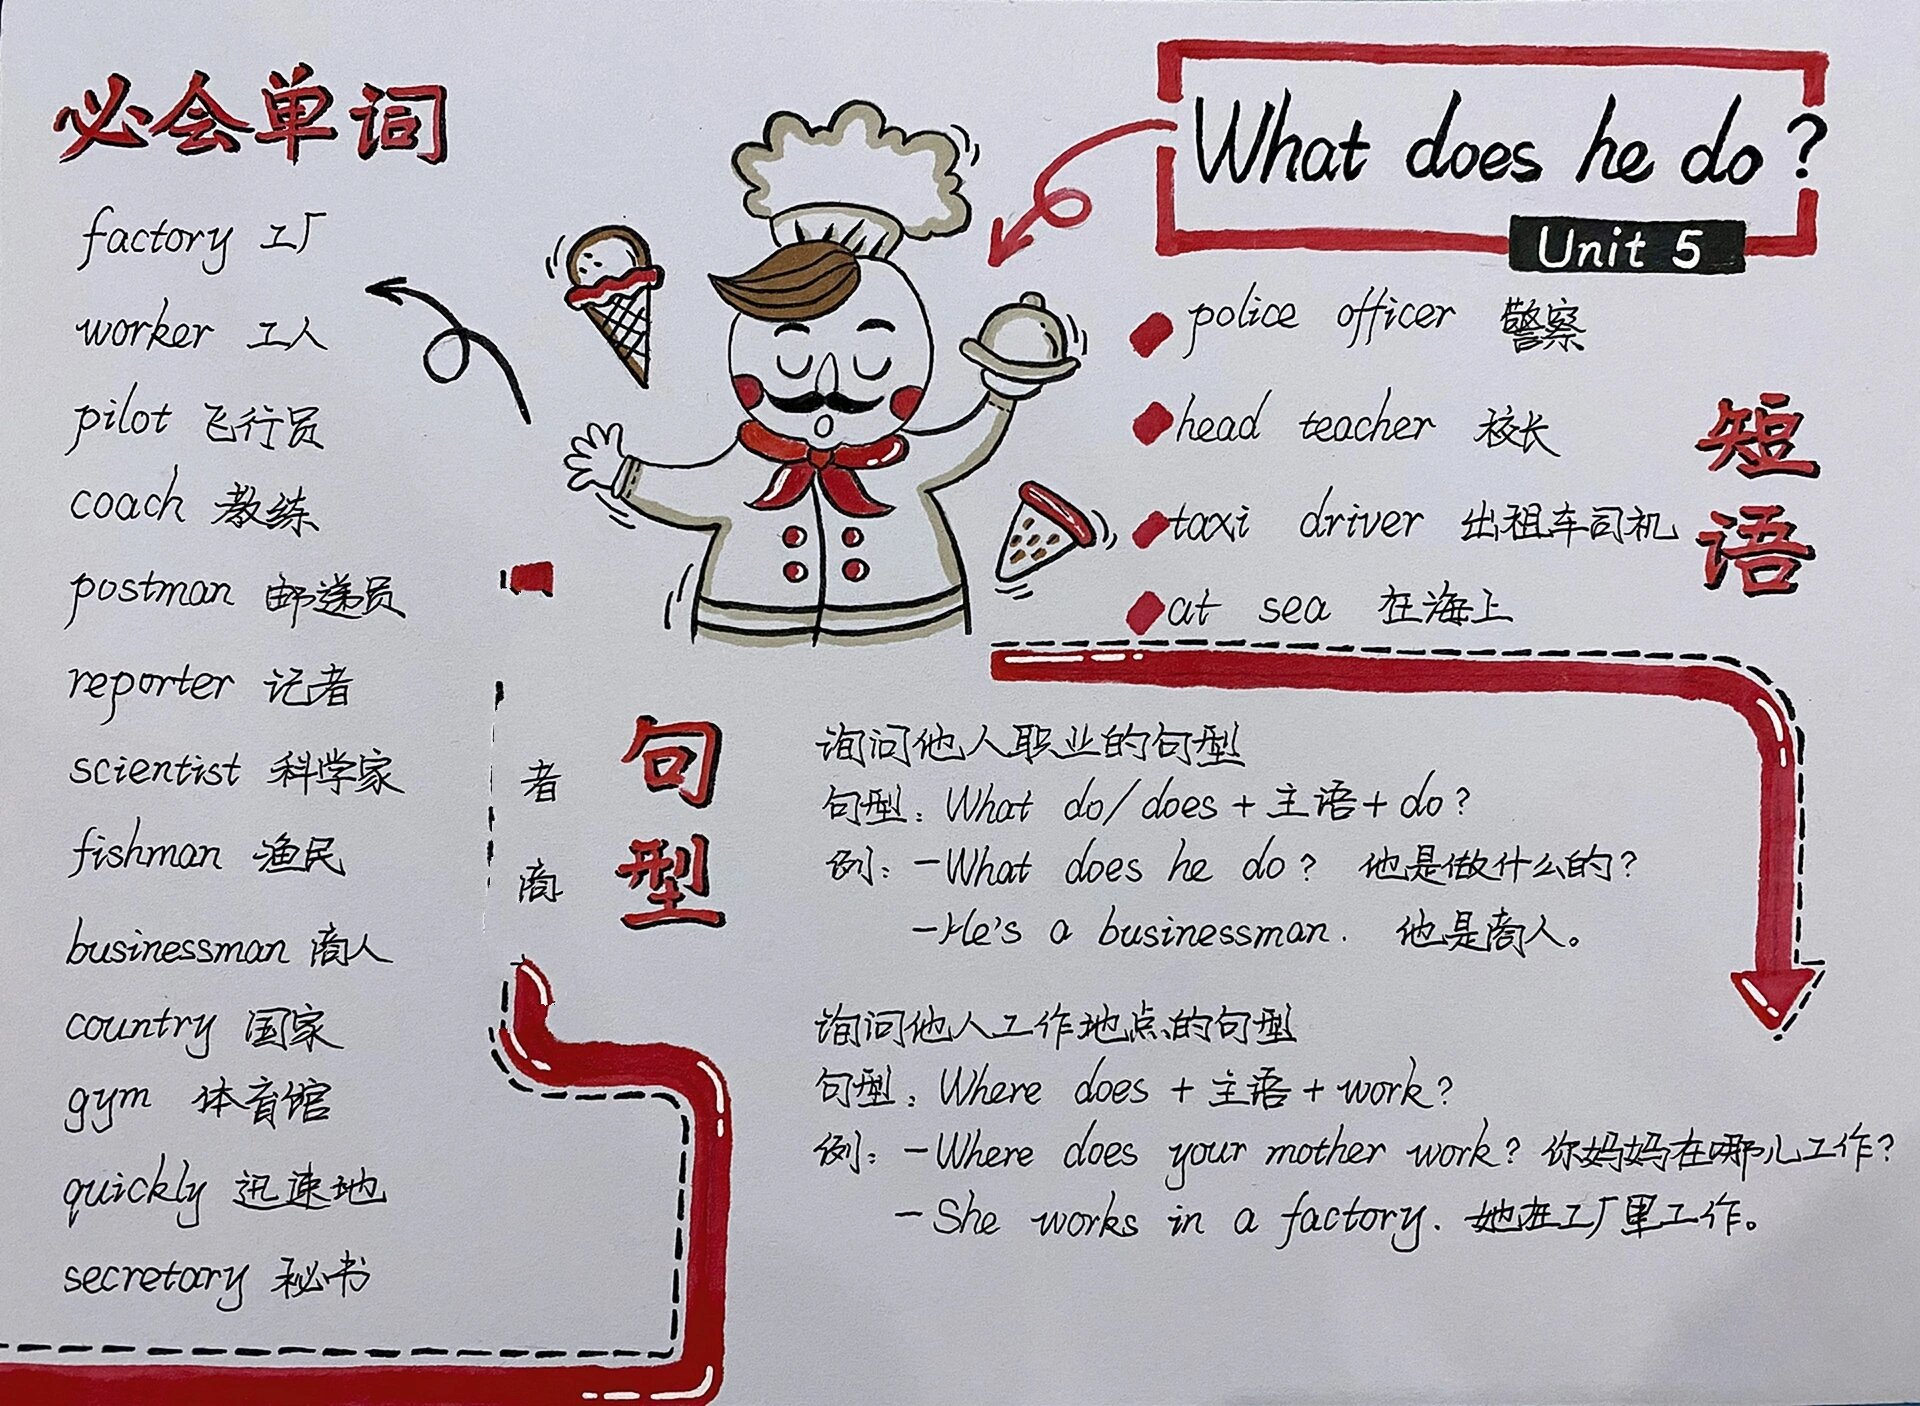 必会单词
factory 工厂
worker 工人
pilot 飞行员
coach 教练
postman 邮递员
reporter 记者
scientist 科学家
fishman 渔民
businessman 商人
country 国家
gym 体育馆
quickly 迅速地
secretary 秘书
What does he do?
Unit 5
短语
police officer 警察
head teacher 校长
taxi driver 出租车司机
at sea 在海上
者
商
句型
询问他人职业的句型
句型：What do/does+主语+do?
例：-What does he do? 他是做什么的?
-He's a businessman. 他是商人。
询问他人工作地点的句型
句型：Where does+主语+work?
例：-Where does your mother work? 你妈妈在哪儿工作?
-She works in a factory. 她在工厂里工作。